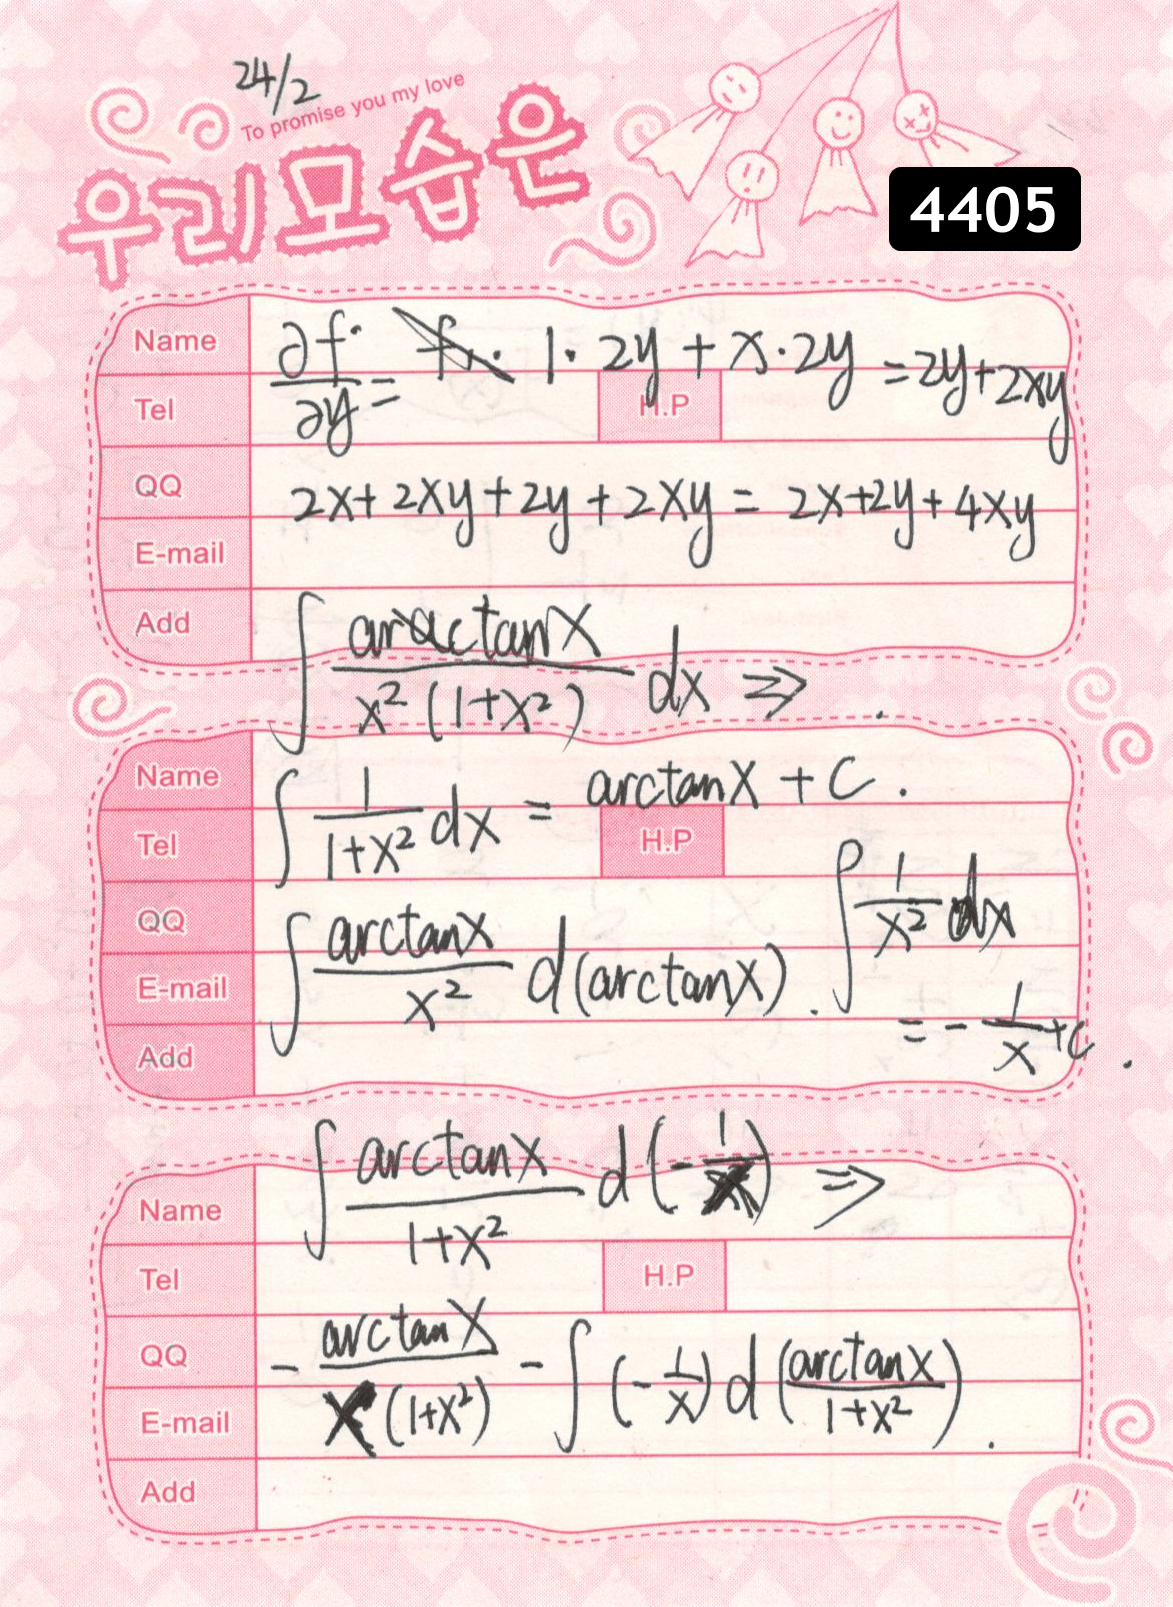 24/2
To promise you my love
우리모습은
4405
Name
Tel
H.P
QQ
E-mail
Add
∂f/∂y = 1·2y + x·2y = 2y+2xy
2x+2xy+2y+2xy = 2x+2y+4xy
∫ arctanx/(x²(1+x²)) dx ⇒
Name
Tel
H.P
QQ
E-mail
Add
∫ 1/(1+x²) dx = arctanx + C.
∫ arctanx/x² d(arctanx). ∫ 1/x² dx
= -1/x +C.
Name
Tel
H.P
QQ
E-mail
Add
∫ arctanx/(1+x²) d(-1/x) ⇒
- arctanx/(x(1+x²)) - ∫(-1/x) d(arctanx/(1+x²)).